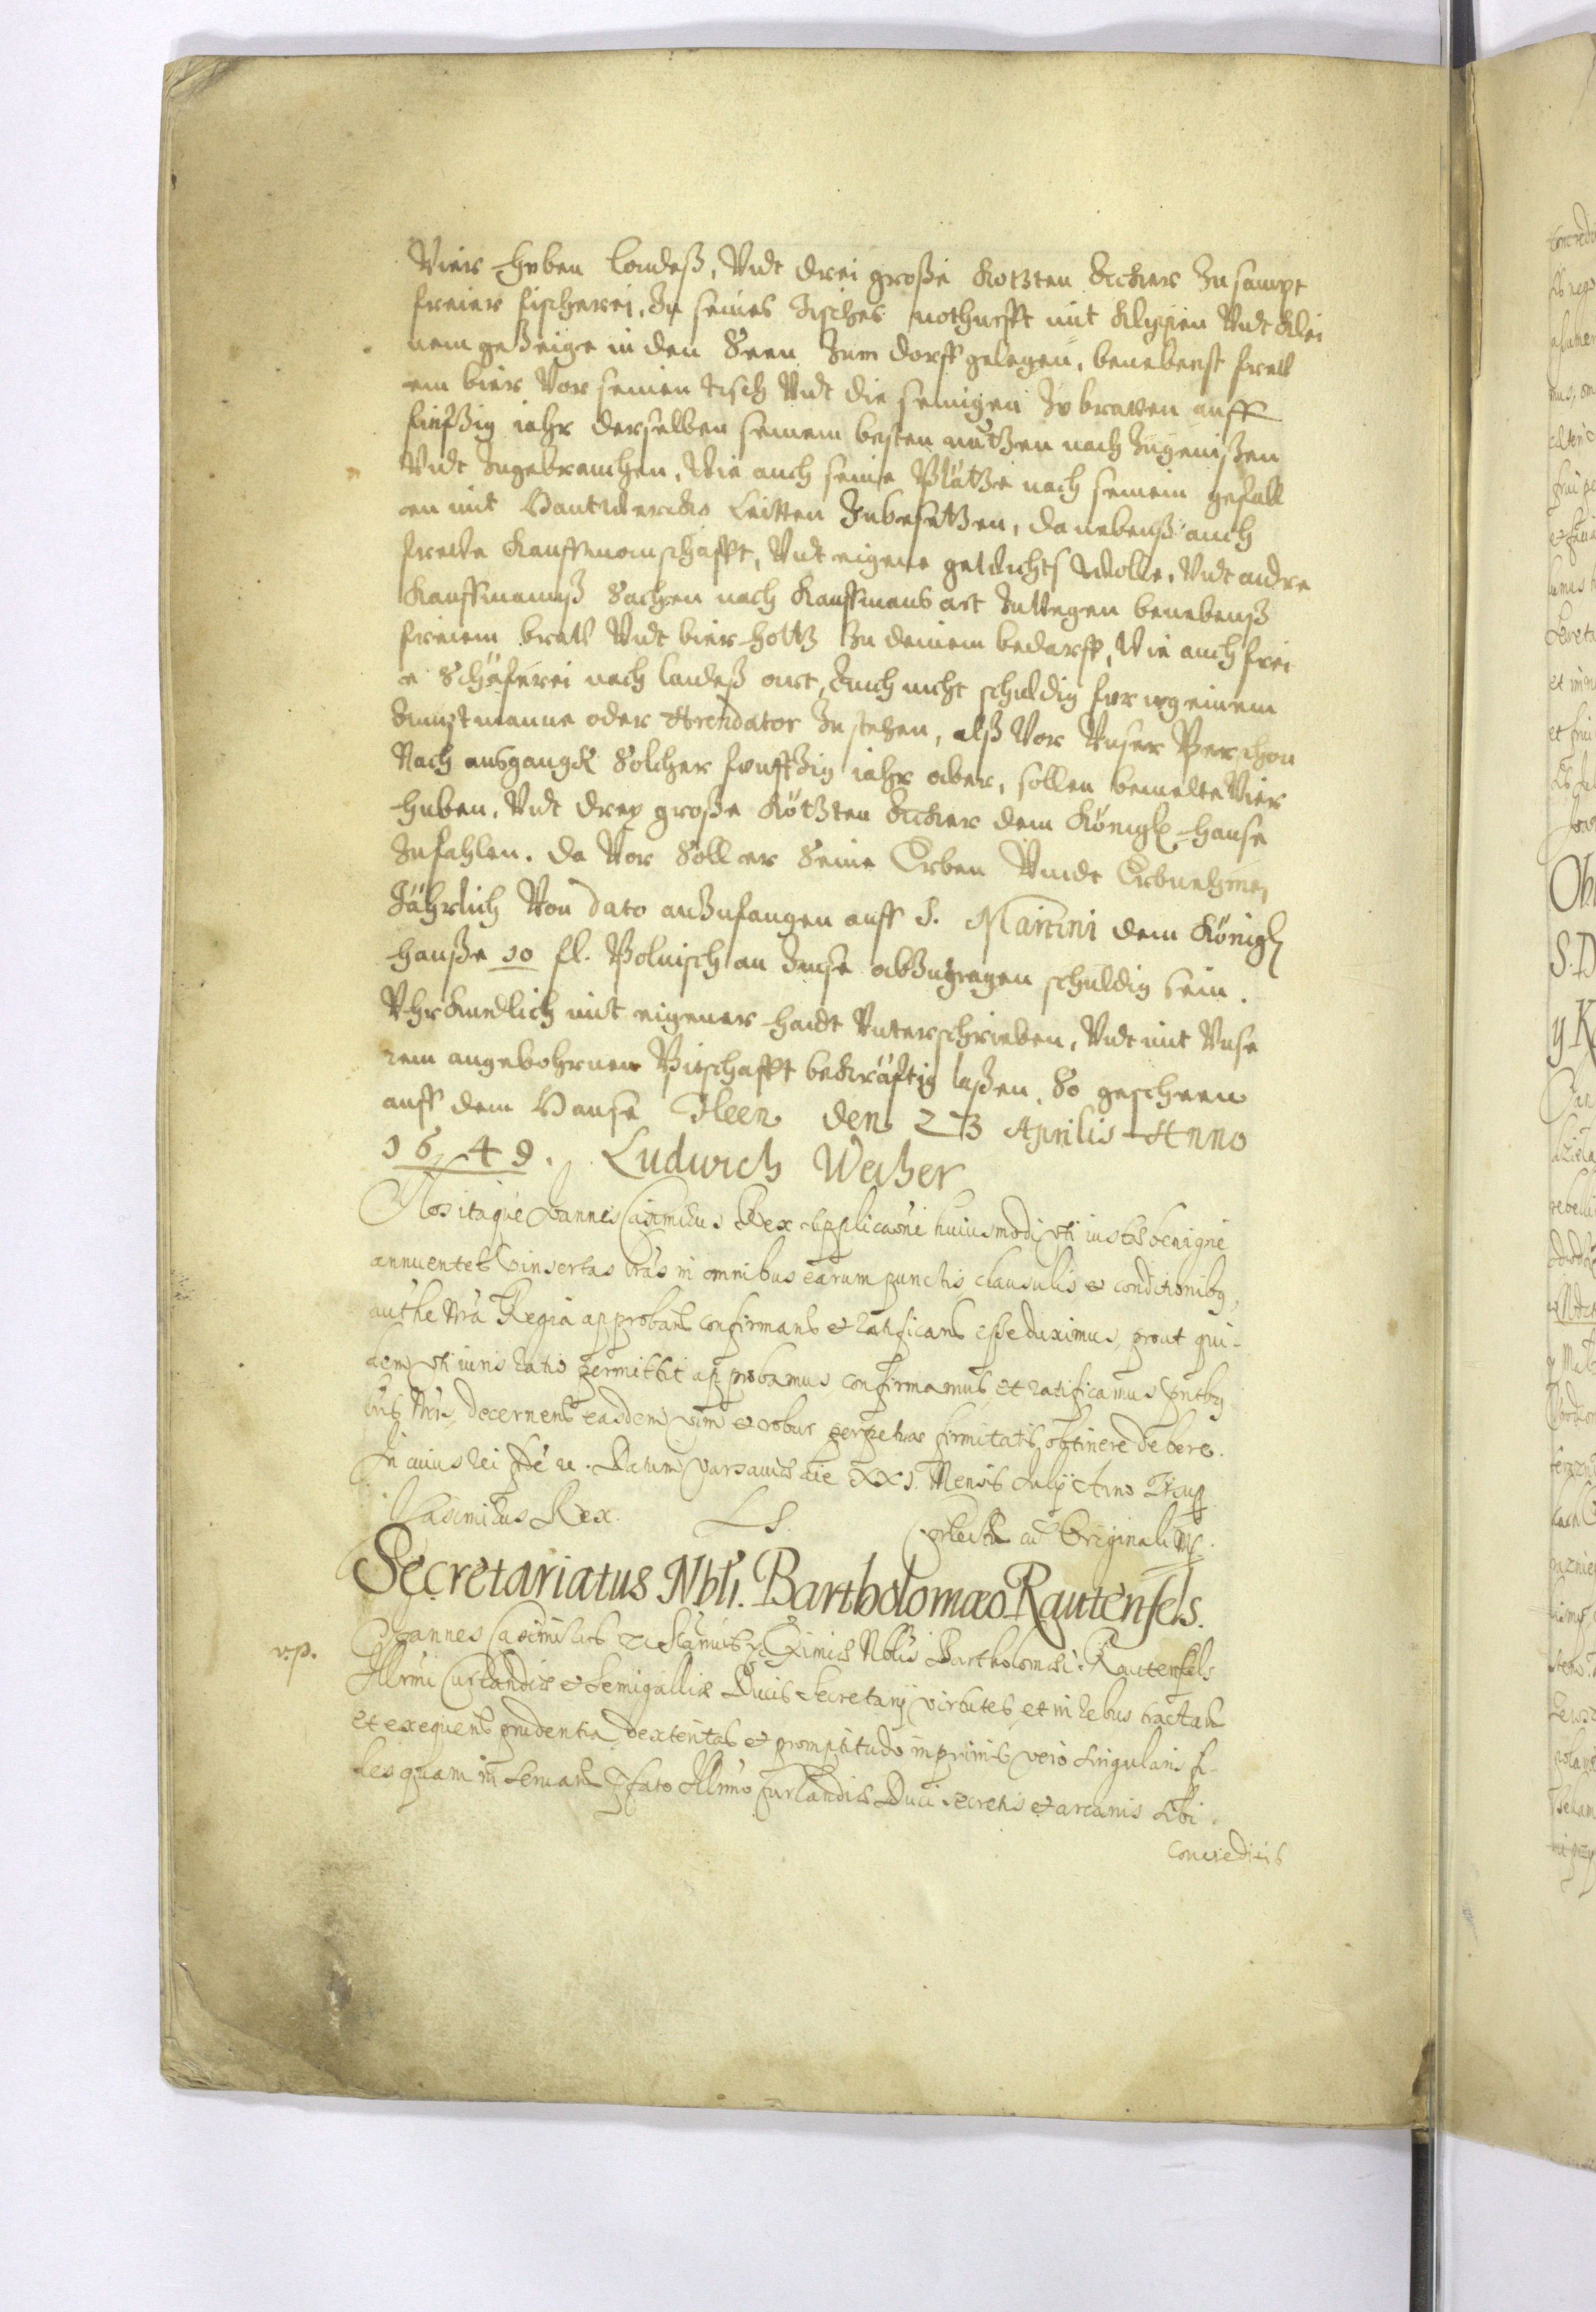 Vier Huben landeß, Vndt drei große Kotzten Äcker Zusampt
freier fischerei, Zu seines Tisches nothurfft mit Klyppen Vndt klei
nem geZeige in den Seen Zum dorff gelegen, benebenst frei
em bier Vor seinen tisch Vndt die seinigen Zu brawen auff
funfzig iahr derselben seinem besten nutzen nach Zugenißen
Vndt Zugebrauchen, Wie auch seine Plätze nach seinem gefall
en mit Hantwercks Leitten Zubesetzen, da nebenß auch
freie Kauffmanschafft, Vndt eigene gewichts Wolle, Vndt andre
Kauffmanß Sachen nach Kauffmans art Zuwegen benebenß
freiem Vndt bier holtz Zu deinem bedarff, Wie auch frei
e Schäferei nach landeß art, Auch nicht schuldig fur irg einem
Ampt manne oder Arendator Zu stehen, alß Vor Vnser Perschon
Nach ausgangk Solcher funffzig iahr aber, sollen bemelte Vier
Huben, Vndt drey große Kötzten Äcker dem Königl Hause
Zufahlen. da Vor Soll er Seine Erben Vnndt Erbnehmer
Jährlich Von dato anZufangen auff S. Martini dem Königl
Hauße 10 fl. Polnisch an Zinse abZutragen schuldig sein.
Vhrkundlich mit eigener Handt Vnterschrieben, Vndt mit Vnse
rem angebohrnen Pitschafft bekräftig laßen. So geschehen
auff dem Hause den 23 Aprilis Anno
1649. Ludwich Weiher
Nos itaque Joannes Casimirus Rex supplicaoni huiusmodi uti iustae benigne
annuentes insertas lras in omnibus earum punctis clausulis et conditionibq,
authe nra Regia approbans confirmans et ratificans esse duximus, prout qui-
dem uti iuris ratio permittit approbamus confirmamus et ratificamus pntbq
lris nris, decernens easdem vim et robur perpetuae firmitatis obtinere debere.
In cuius rei fidē &. Datum Varsaviae die XXI. Mensis July Anno
Casimirus Rex. LS. Correcta cū Originali
Secretariatus Nbli. Bartholomæo Rautenfels.
Joannes Casimirus & Eximiae Nblis Bartholomei Rautenfels
v.p. Illrmi Curlandiae et Semigalliae Ducis Secretarij virtutes, et in rebus tractan
et exequens prudentia dexteritas et promptitudo inprimis vero singularis fi-
des quam in servan pfato Illrmo Curlandiae Duci secretis et arcanis sibi
concreditis